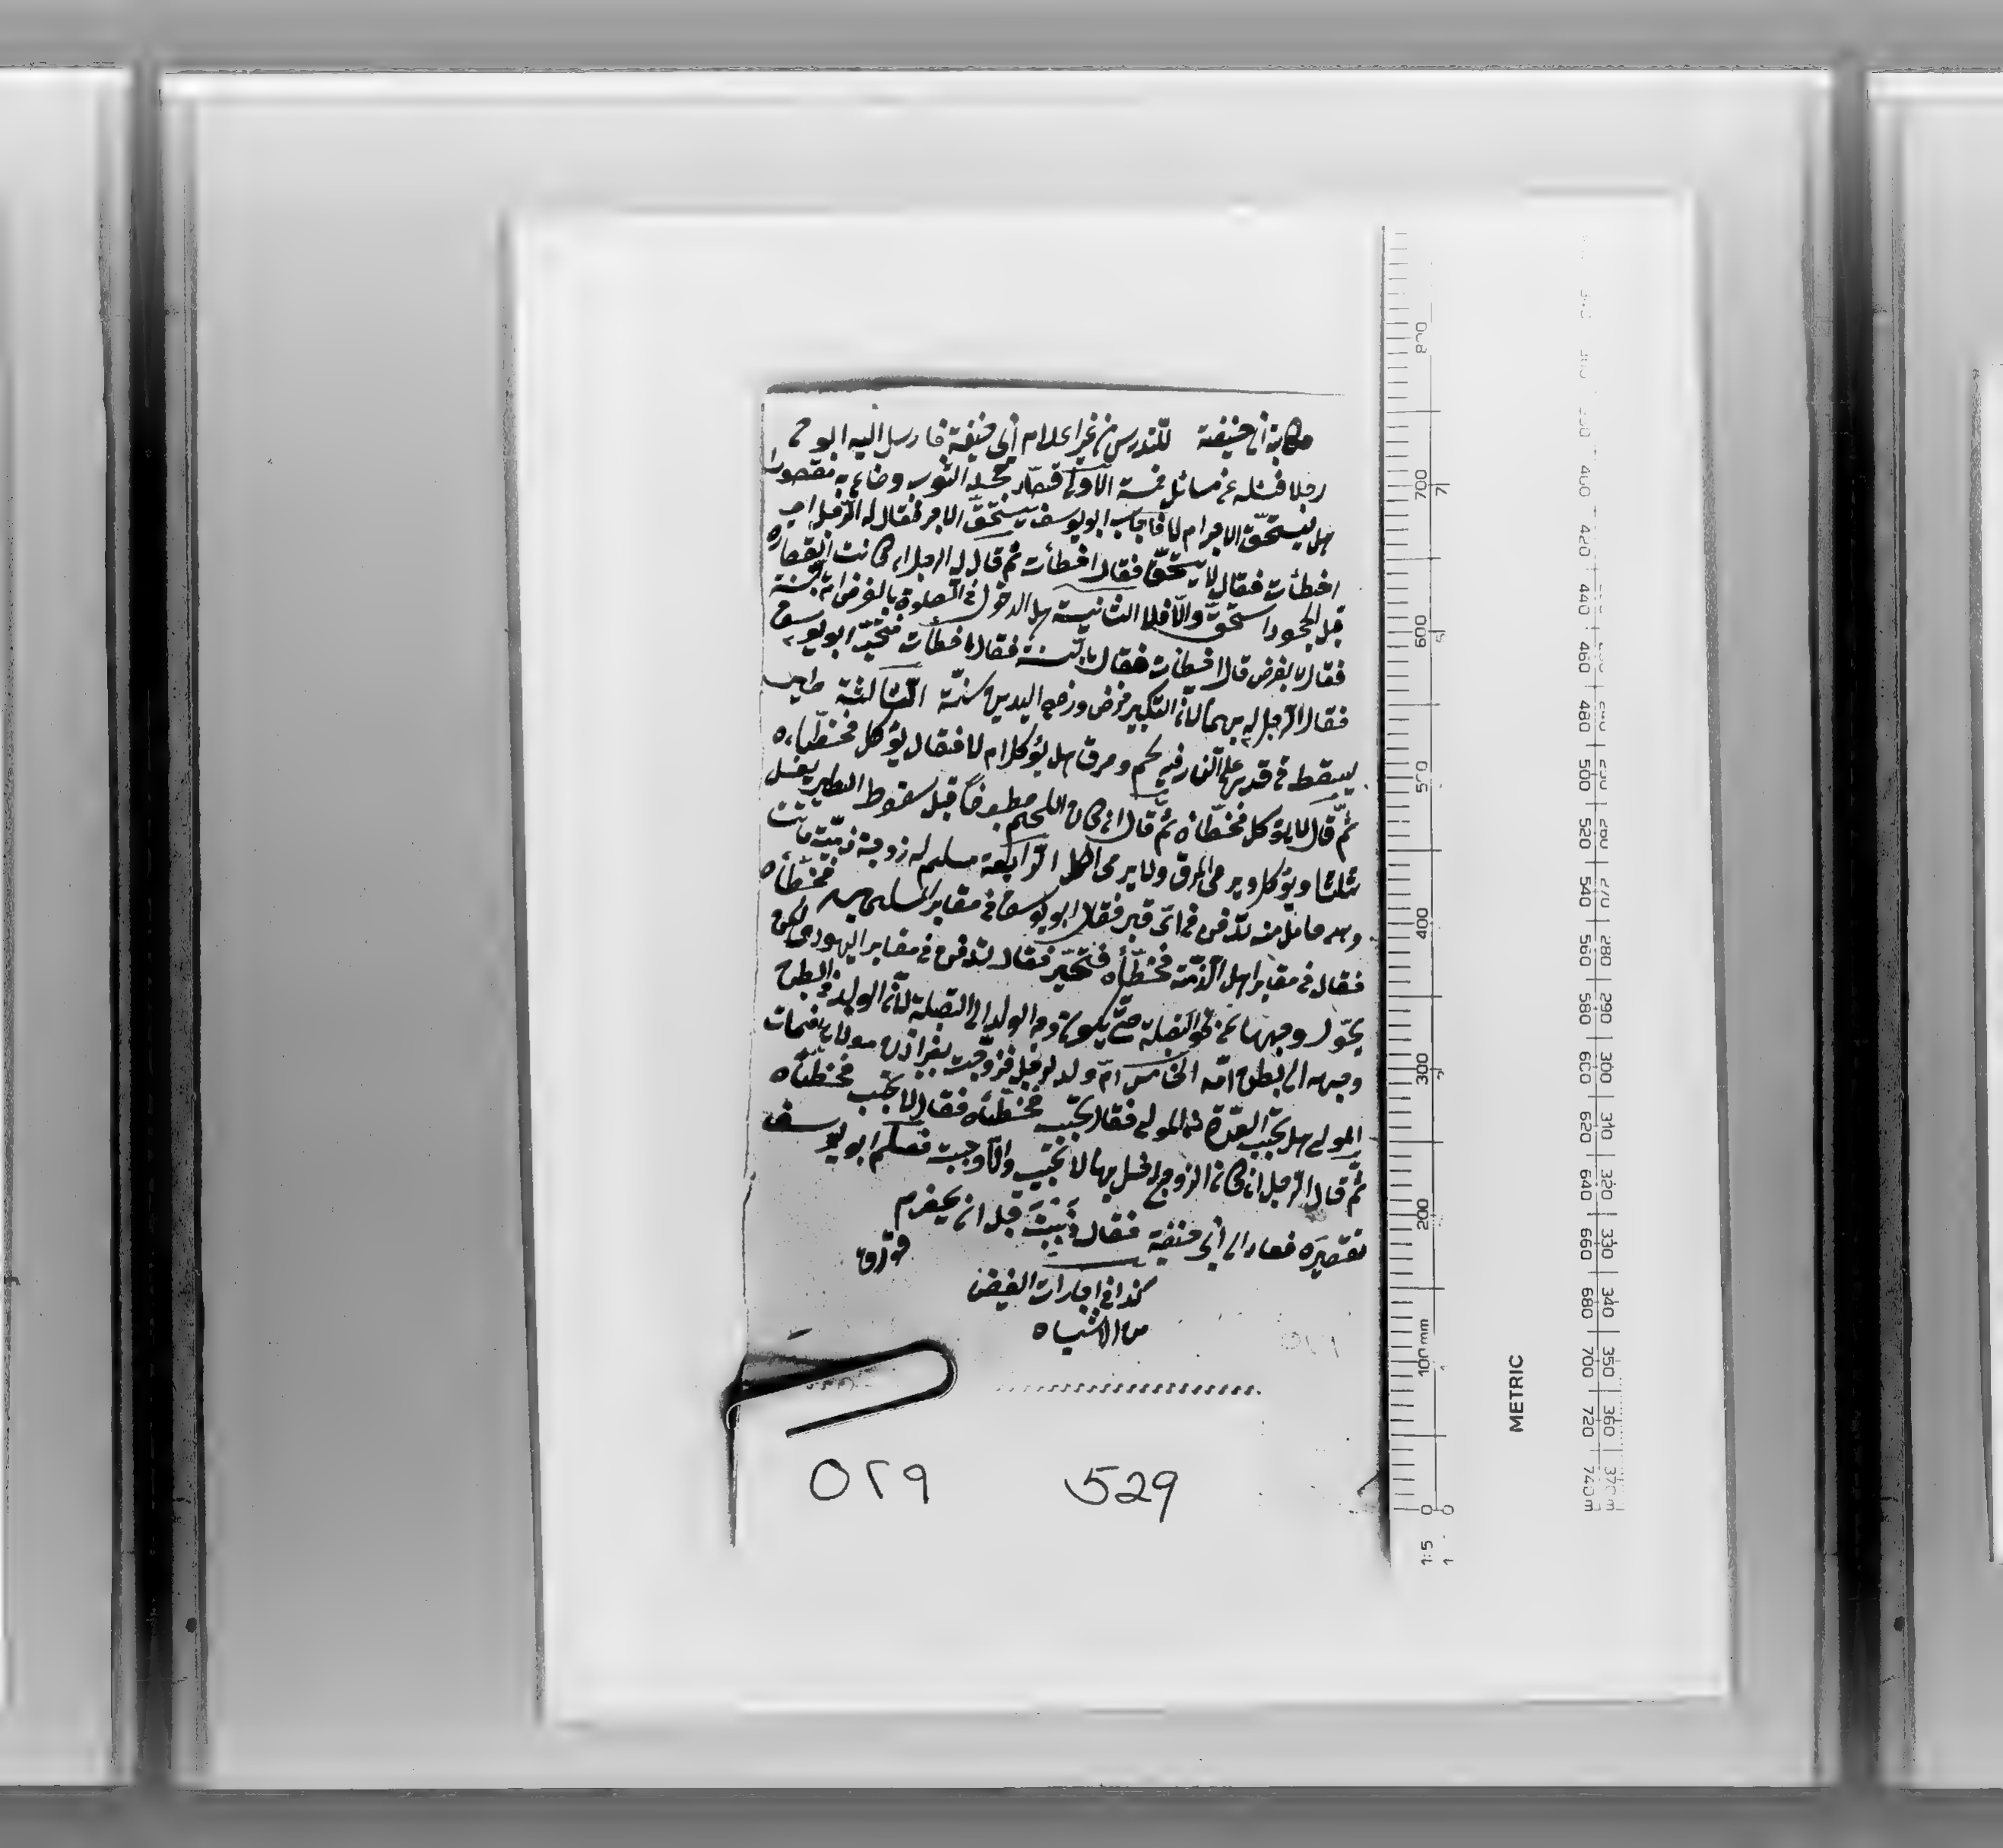 حكاية أبي حنيفة للتدريس من غير اعلام أبي حنيفة فارسل اليه ابو ح
رجلا فسئله عن مسائل خمسة الأولى قصّار جحد الثوب وجاء به مقصورا
هل يستحقّ الاجر ام لا فاجاب ابو يوسف يستحقّ الاجر فقال له الرّجل
اخطأت فقال لا يستحقّ فقال اخطأت ثم قال له الرجل ان كانت القصارة
قبل الجحود استحقّ والّا فلا الثانية هل الدخول في الصلوة بالفرض ام بالسّنة
فقال بالفرض قال اخطأت فقال بالسّنة فقال اخطأت فتحيّر ابو يوسف
فقال الرّجل بهما لانّ التكبير فرض ورفع اليدين سنّة الثّالثة طير
سقط في قدر على النّار فيه لحم ومرق هل يؤكل ام لا فقال يؤكل فخطّاءه
ثمّ قال لا يؤكل فخطّأه ثمّ قال ان كان اللحم مطبوخاً قبل سقوط الطير يغسل
ثلثا ويؤكل ويرمى المرق والا يرمى الكل الرّابعة مسلم له زوجة ذمّية ماتت
وهي حامل منه تدفن في ايّ قبر فقال ابو يوسف في مقابر المسلمين فخطّأه
فقال في مقابر اهل الذّمّة فخطّأه فتحيّر فقال تدفن في مقابر اليهود لكن
يحوّل وجهها عن نحو القبلة حتّى يكون وجه الولد الى القبلة لانّ الولد في البطن
وجهه الى بطن امّه الخامس امّ ولد لرجل تزوّجت بغير اذن مولاها فمات
المولى هل تجب العدّة من المولى فقال تجب فخطّئه فقال لا تجب فخطّئاه
ثمّ قال الرّجل ان كان الزوج دخل بها لا تجب والّا وجبت فعلم ابو يوسف
تقصيره فعاد الى أبي حنيفة فقال زبّبت قبل ان يحصرم
كذا في اجارات الفيض
من الاشباه
٥٢٩ 529
METRIC